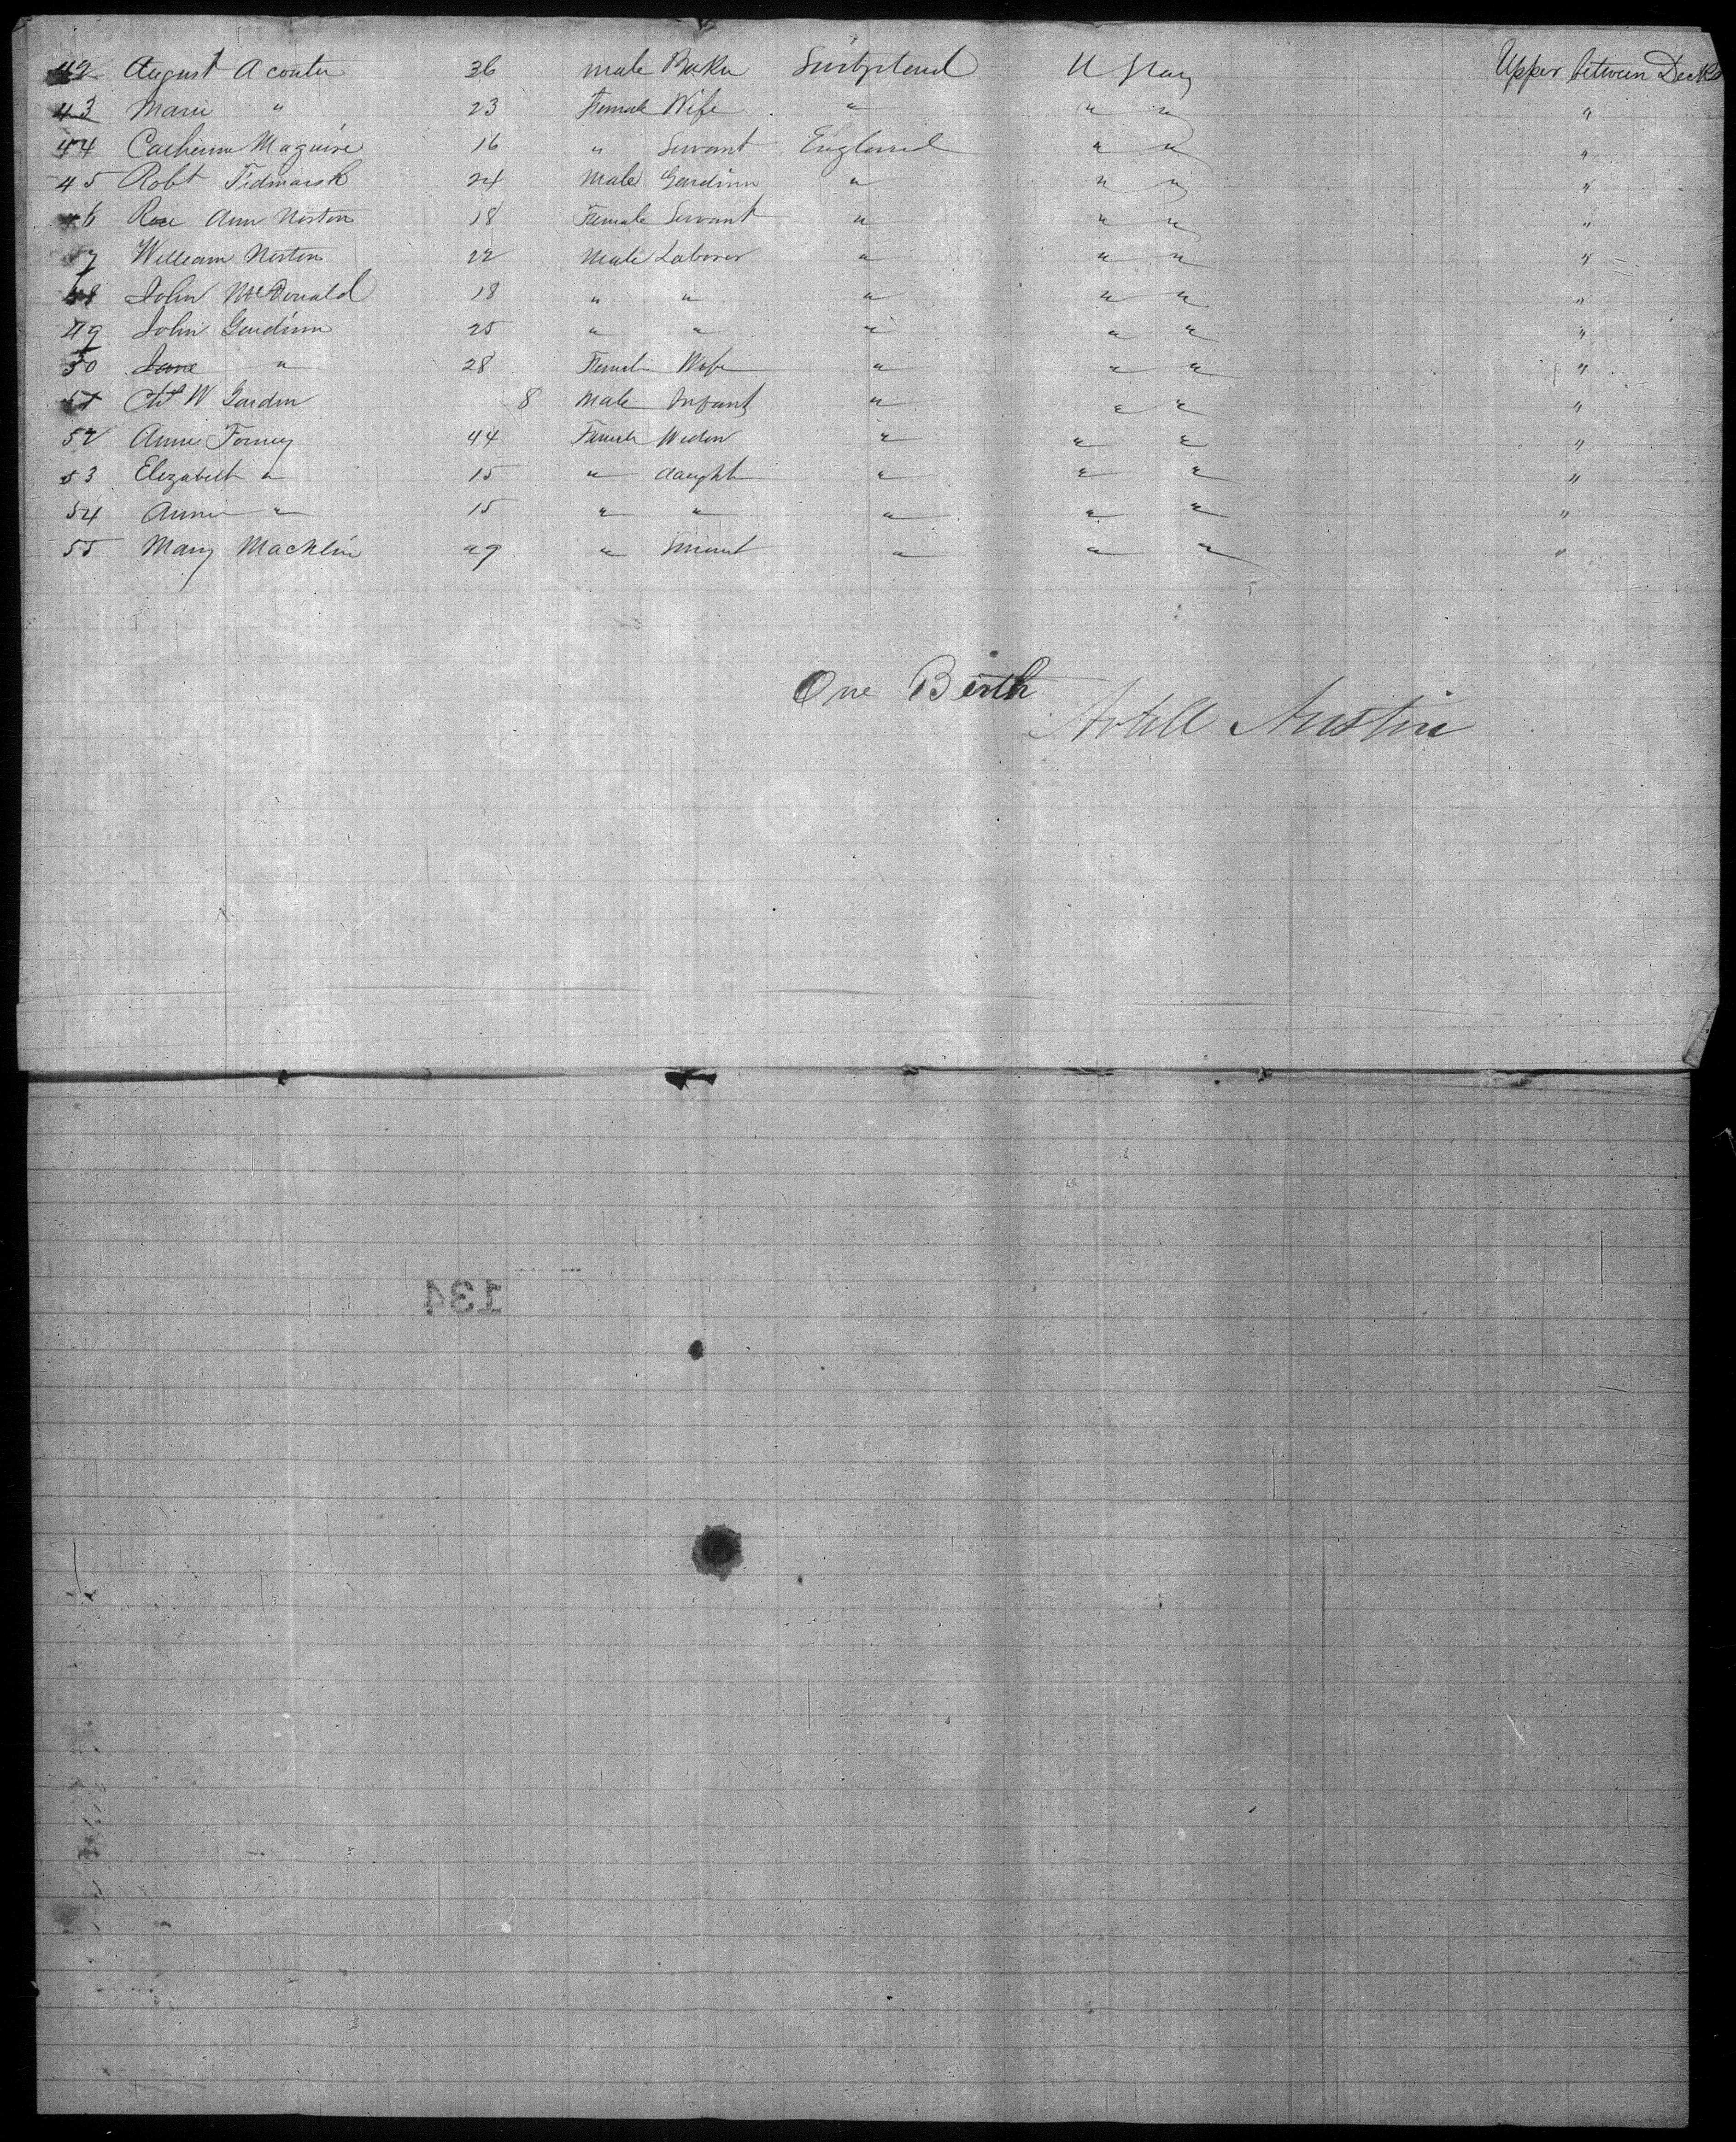 42 August Aconter 36 male Baker Switzerland U Stay Upper between Decks
43 Marie " 23 Female Wife " " " "
44 Catherine Maguire 16 " Servant England " " "
45 Robt Tidmarsh 24 Male Gardiner " " " "
46 Rose Ann Norton 18 Female Servant " " " "
47 William Norton 22 Male Laborer " " " "
48 John McDonald 18 " " " " " "
49 John Gardiner 25 " " " " " "
50 Jane " 28 Female Wife " " " "
51 W Garden 8 Male Infant " " " "
52 Annie 44 Female Widow " " " "
53 Elizabeth " 15 " daught " " " "
54 Annie " 15 " " " " " "
55 Mary Macklin 49 " Servant " " " "
One Birth
Austin
134